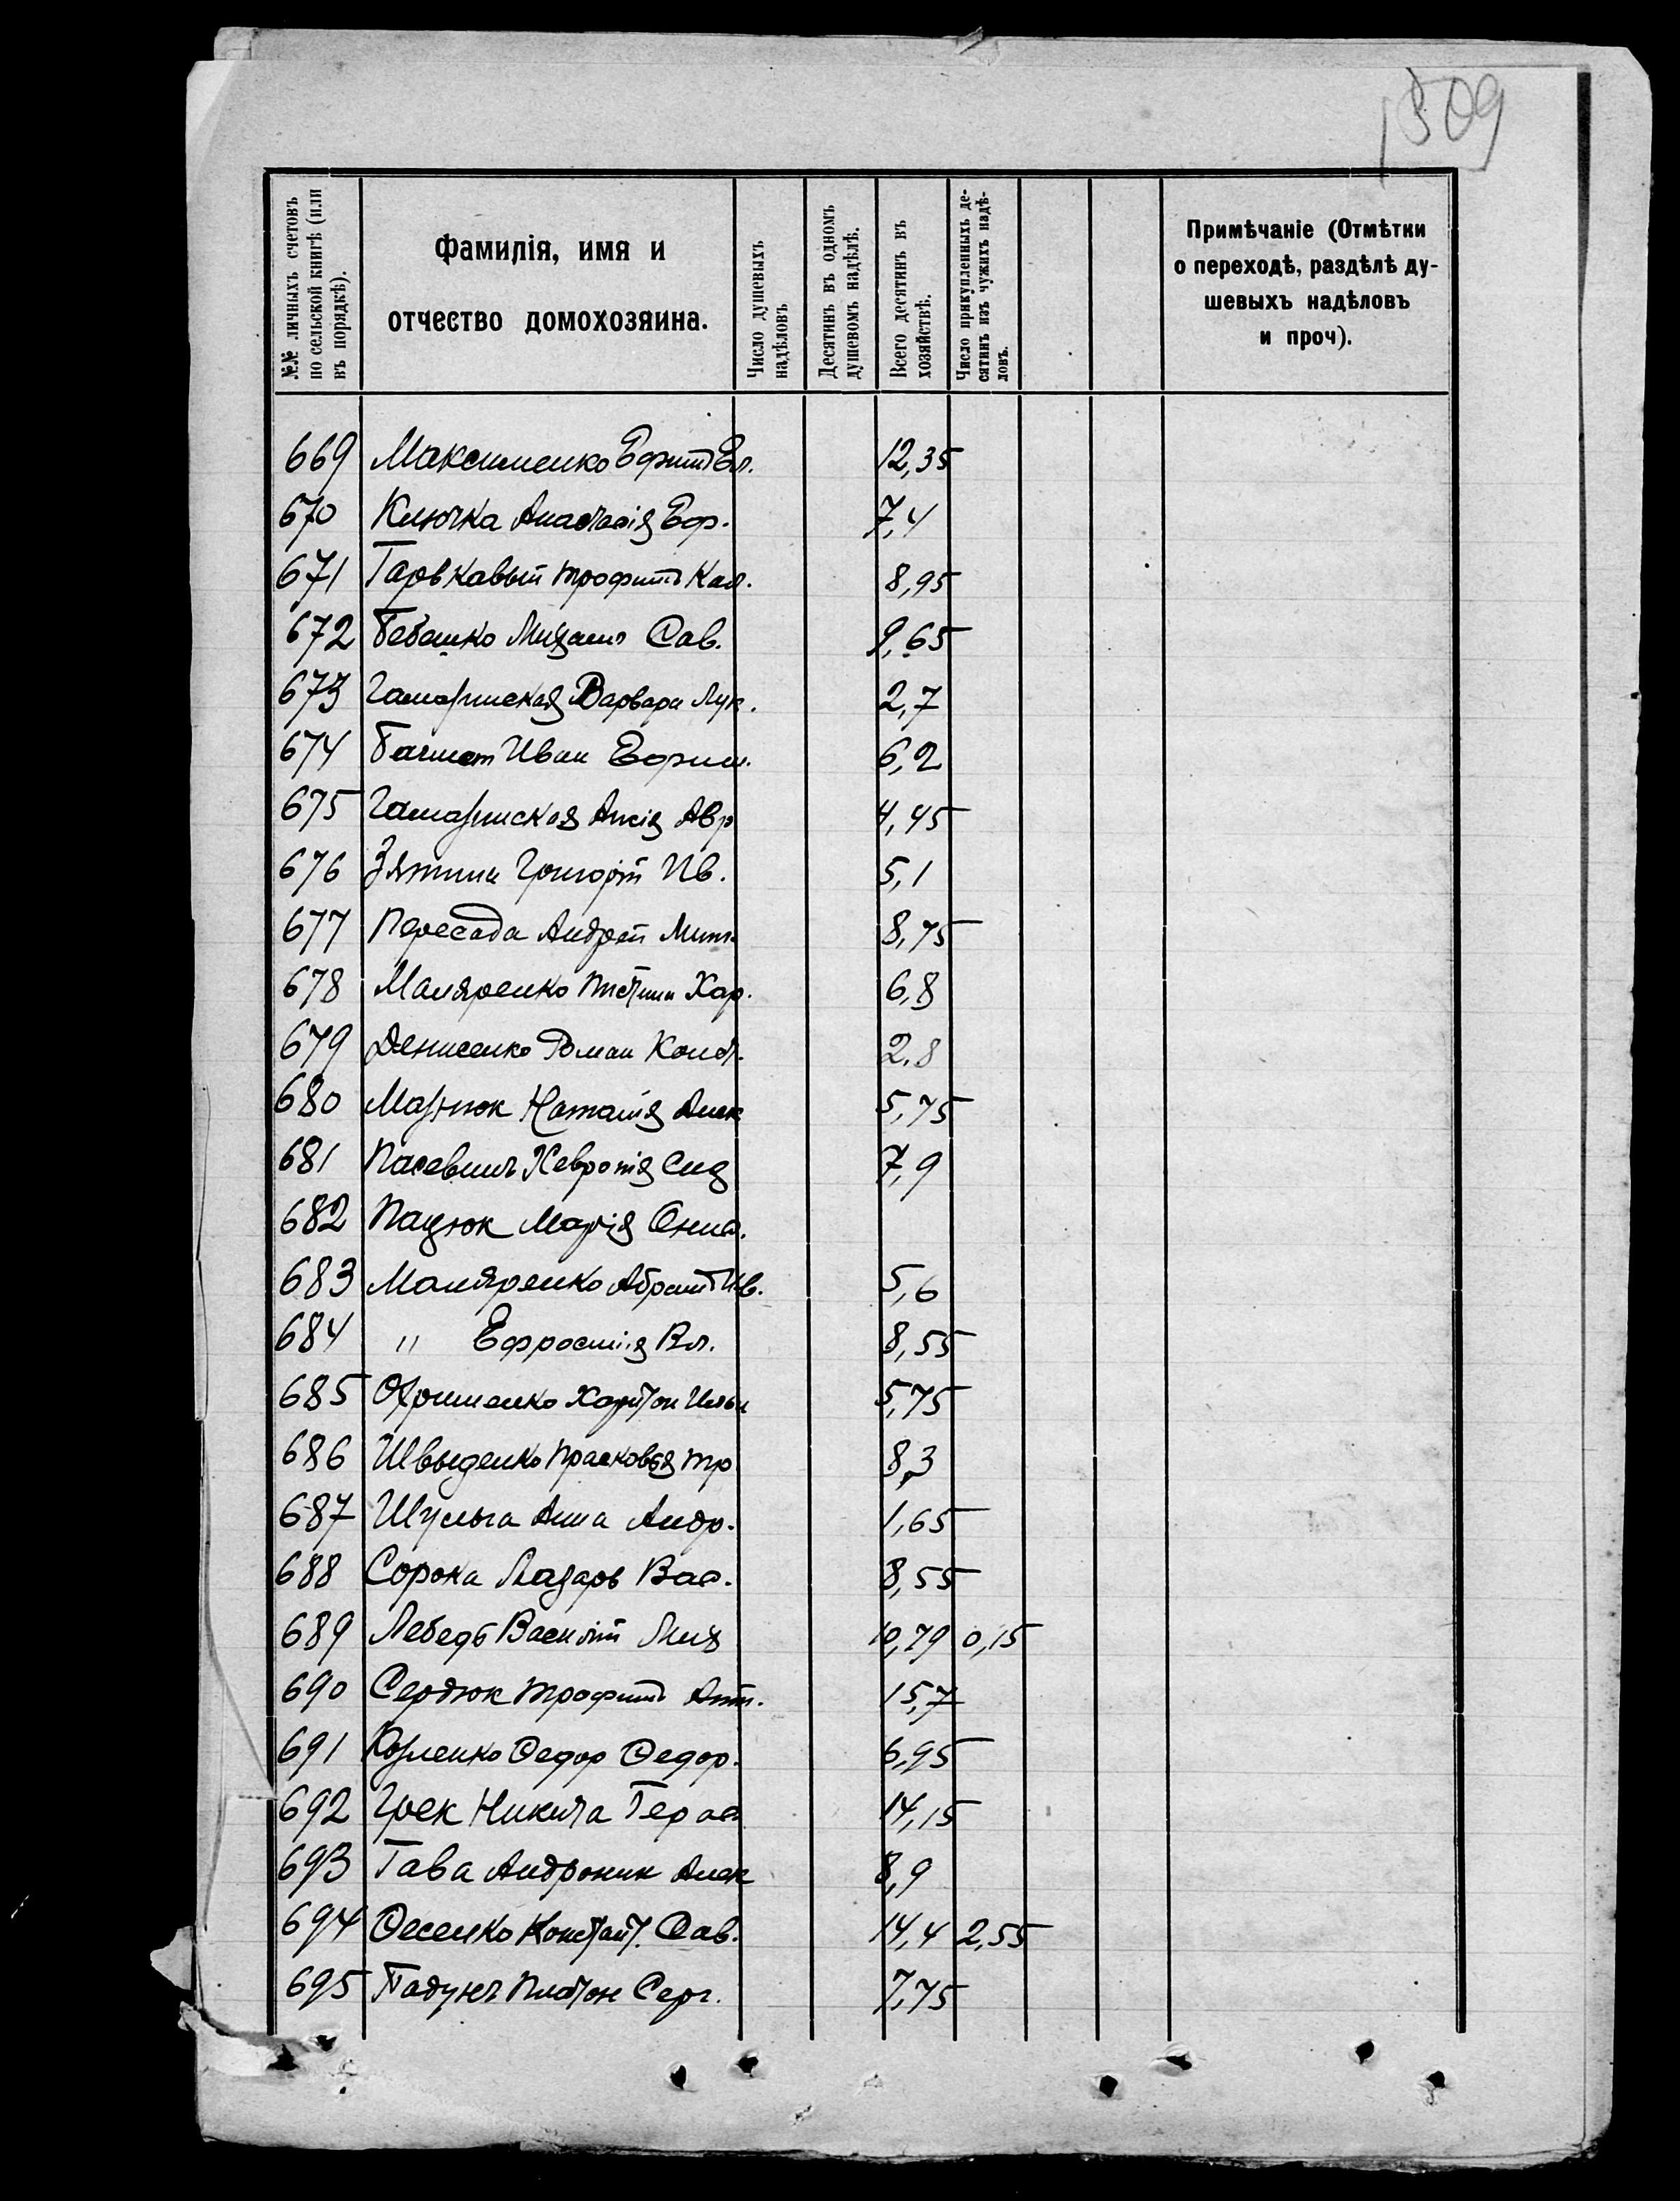 509
№№ личныхъ счетовъ
по сельской книгѣ (или
въ порядкѣ).
Фамилія, имя и
отчество домохозяина.
Число душевыхъ
надѣловъ
Десятинъ въ одномъ
душевомъ надѣлѣ.
Всего десятинъ въ
хозяйствѣ.
Число прикупленныхъ де-
сятинъ изъ чужихъ надѣ-
ловъ.
Примѣчаніе (Отмѣтки
о переходѣ, раздѣлѣ ду-
шевыхъ надѣловъ
и проч).
669 Максименко Ефимъ Ел. 12,35
670 Ключка Анастасія Еф. 7,4
671 Гаркавый Трофимъ Кал. 8,95
672 Бебешко Михаилъ Сав. 9,65
673 Гамаринская Варвара Лук. 2,7
674 Иван Ефим. 6,2
675 Гамаринская Авр 4,45
676 Зятин Григорій Ив. 5,1
677 Пересада Андрей Мит. 8,75
678 Маляренко Пистин Хар. 6,8
679 Денисенко Роман Конст. 2.8
680 Мартюк Наталія Алек 5,75
681 Пасевичъ Хевронія Сид 7,9
682 Пацюк Марія Онис.
683 Маляренко Абрам Ив. 5,6
684 " Ефросинія Вл. 8,55
685 Охрименко Харитон Ильи 5,75
686 Швыденко Прасковья Тр 8,3
687 Шульга Анна Андр. 1,65
688 Сорока Лазарь Вас. 8,55
689 Лебедь Василій Мих 10,79 0,15
690 Сердюк Трофимъ Ант. 15,7
691 Козленко Федор Федор. 6,95
692 Грек Никита Герас 14,15
693 Гава Андроник Алек 8,9
694 Фесенко Констант. Сав. 14,4 2,55
695 Падунъ Платон Серг. 7,75